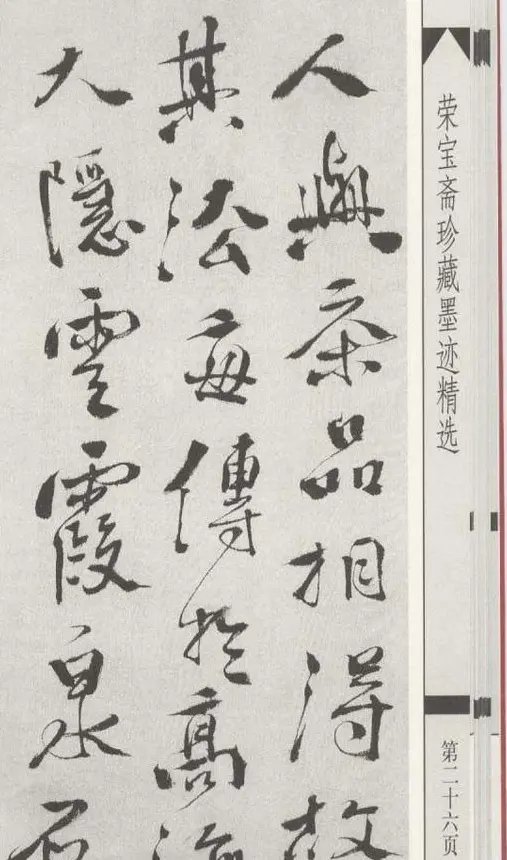 荣宝斋珍藏墨迹精选
第二十六页
人與茶品相得故
其法每傳於高
大隱雲霞泉石